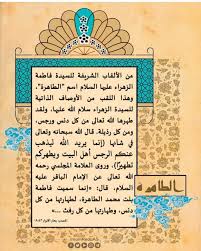 من الألقاب الشريفة للسيدة فاطمة
الزهراء عليها السلام اسم "الطاهرة"،
وهذا اللقب من الأوصاف الذاتية
للسيدة الزهراء سلام الله عليها، ولقد
طهرها الله تعالى من كل دنس ورجس،
ومن كل رذيلة، قال الله سبحانه وتعالى
في شأنها {إنما يريد الله ليذهب
عنكم الرجس أهل البيت ويطهركم
تطهيراً}، وروى العلامة المجلسي رحمه
الله تعالى عن الإمام الباقر عليه
السلام، قال: «إنما سميت فاطمة
بنت محمد الطاهرة، لطهارتها من كل
دنس، وطهارتها من كل رفث ...»
الطاهرة